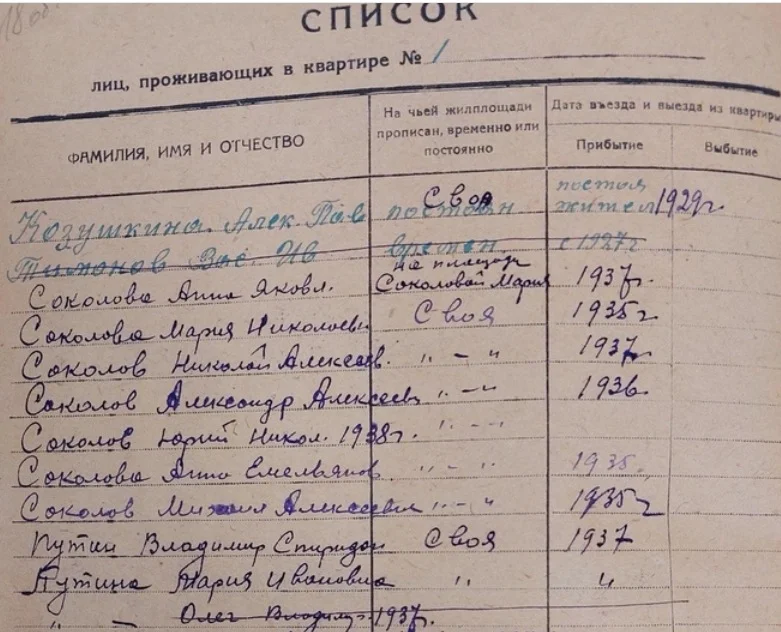 18 об.
СПИСОК
лиц, проживающих в квартире № 1
ФАМИЛИЯ, ИМЯ И ОТЧЕСТВО
На чьей жилплощади прописан, временно или постоянно
Дата въезда и выезда из квартиры
Прибытие
Выбытие
Козушкина Алек. Пав постоян Своя постоя жител 1929 г.
Тимонов Вас. Ив времен с 1927 г
Соколова Анна Яковл. на площади Соколовой Мария 1937 г.
Соколова Мария Николаевн Своя 1935 г
Соколов Николай Алексеев. „ – „ 1937 г.
Соколов Александр Алексеев „ – „ 1936
Соколов Юрий Никол. 1938 г. „ – „
Соколова Анна Емельянов. „ – „ 1935.
Соколов Михаил Алексеевич „ – „ 1935 г
Путин Владимир Спиридон Своя 1937
Путина Мария Ивановна „ „
„ – Олег Владим. 1937 г.